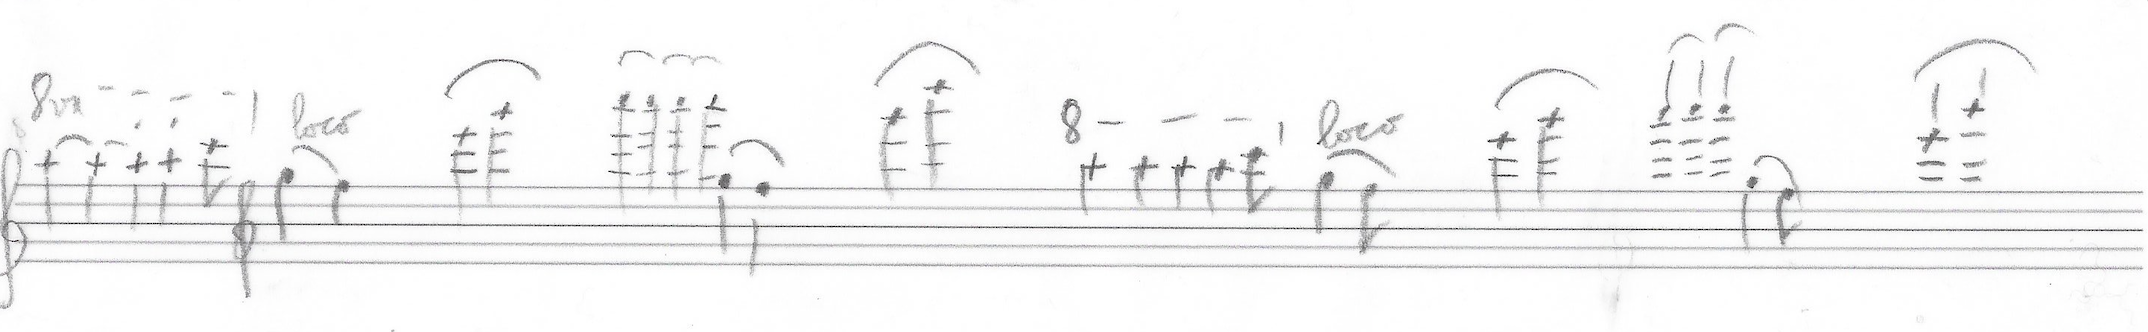 8va loco 8 loco